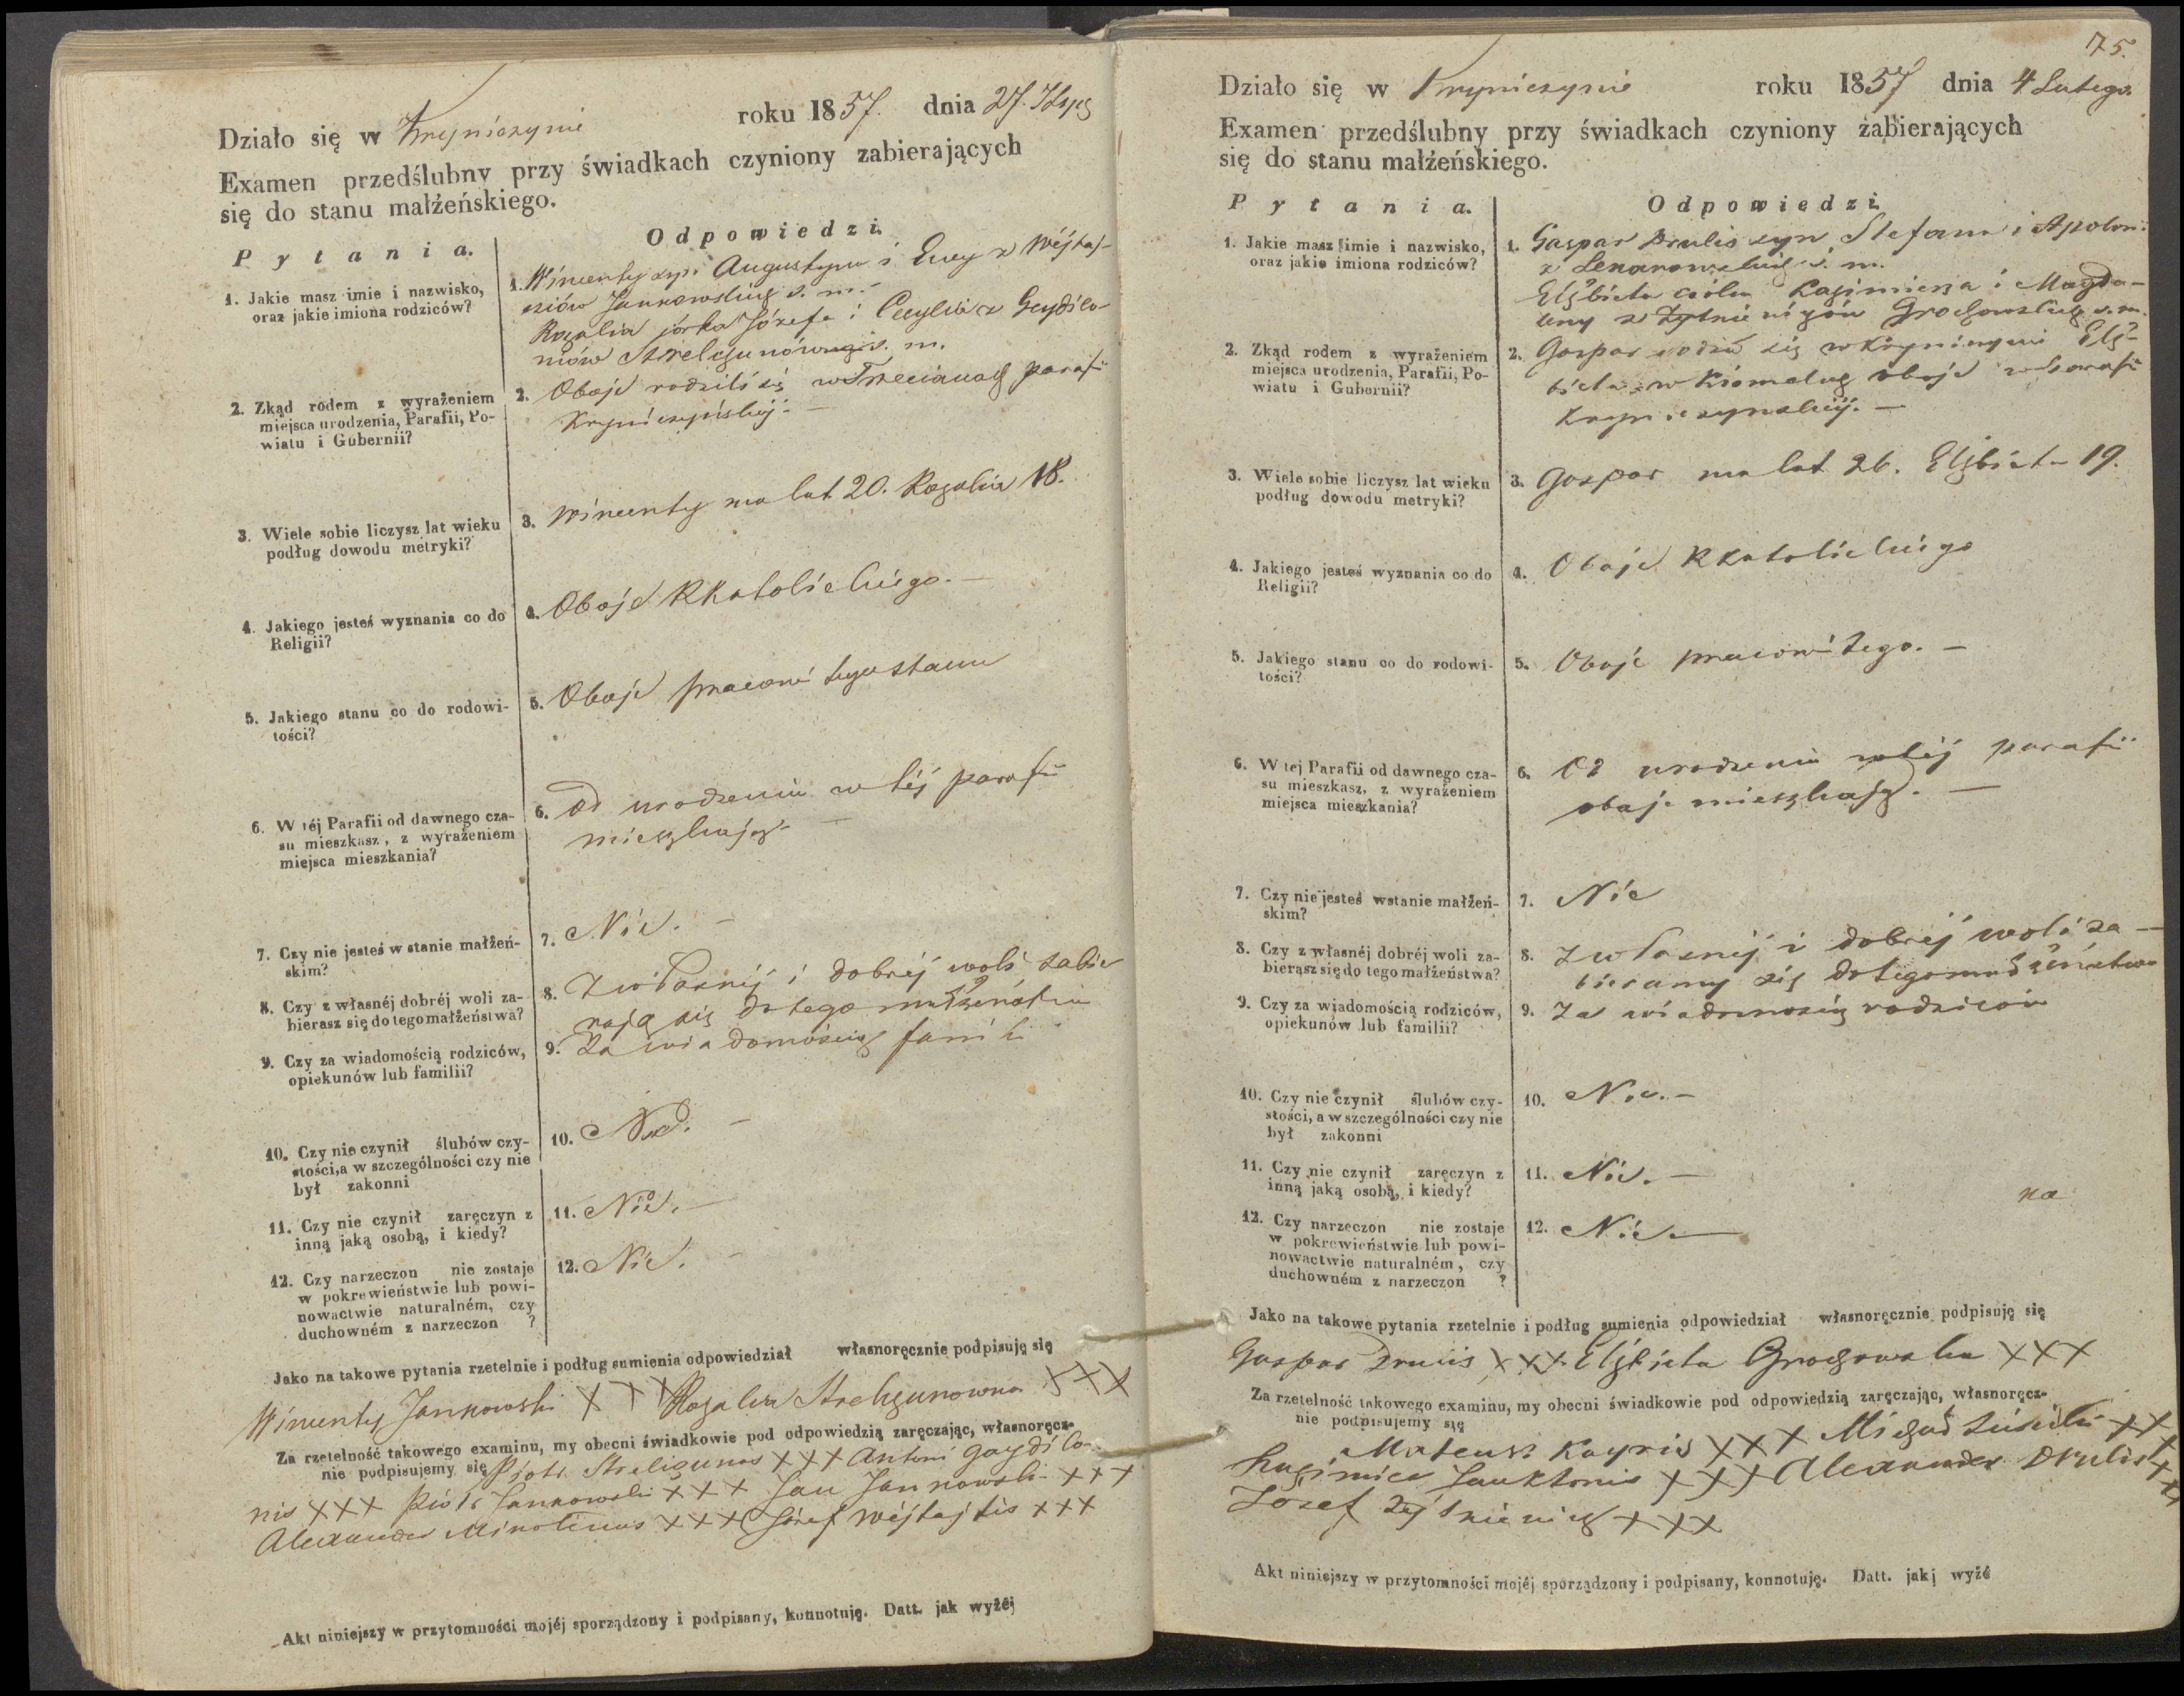 Działo się w Krynicznie roku 1857. dnia 27.
Examen przedślubny przy świadkach czyniony zabierających
się do stanu małżeńskiego.
Pytania. Odpowiedzi
1. Jakie masz imie i nazwisko,
oraz jakie imiona rodziców?
1. Wincenty syn Augustyna i Ewy z Wejtaj-
ciów Jankowskich s. m.
Rozalia córka Józefa i Cecylii z Gaydilo-
niów s. m.
2. Zkąd rodem z wyrażeniem
miejsca urodzenia, Parafii, Po-
wiatu i Gubernii?
2. Oboje rodzili się parafii
3. Wiele sobie liczysz lat wieku
podług dowodu metryki?
3. Wincenty ma lat 20. Rozalia 18.
4. Jakiego jesteś wyznania co do
Religii?
4. Oboje RKatolickiego. —
5. Jakiego stanu co do rodowi-
tości?
5. Oboje pracowitego stanu
6. W téj Parafii od dawnego cza-
su mieszkasz, z wyrażeniem
miejsca mieszkania?
6. Od urodzenia w téj parafii
mieszkają. —
7. Czy nie jesteś w stanie małżeń-
skim?
7. Nie. —
8. Czy z własnéj dobréj woli za-
bierasz się do tego małżeństwa?
8. Z własnéj i dobréj woli zabie
rają się do tego małżeństwa
9. Czy za wiadomością rodziców,
opiekunów lub familii?
9. Za wiadomością famili
10. Czy nie czynił ślubów czy-
stości, a w szczególności czy nie
był zakonni
10. Nie. —
11. Czy nie czynił zaręczyn z
inną jaką osobą, i kiedy?
11. Nie. —
12. Czy narzeczon nie zostaje
w pokrewieństwie lub powi-
nowactwie naturalném, czy
duchowném z narzeczon ?
12. Nie. —
Jako na takowe pytania rzetelnie i podług sumienia odpowiedział własnoręcznie podpisuję się
Wincenty Jankowski XXX Rozalia Strelzunowna XXX
Za rzetelność takowego examinu, my obecni świadkowie pod odpowiedzią zaręczając, własnoręcz-
nie podpisujemy się Piotr Streliounas XXX Antoni Gaydilo-
nis XXX Piotr Jankowski XXX Jan Jankowski XXX
Alexander XXX Józef Wéjtajtis XXX
Akt niniejszy w przytomności mojéj sporządzony i podpisany, konnotuję. Datt. jak wyżéj
75.
Działo się w Krynicznie roku 1857 dnia 4 Lutego.
Examen przedślubny przy świadkach czyniony zabierających
się do stanu małżeńskiego.
Pytania. Odpowiedzi
1. Jakie masz imie i nazwisko,
oraz jakie imiona rodziców?
1. Gaspar Drulis syn Stefana i Apoloni
z s. m.
Elżbieta córka Kazimierza i Magda-
leny z Grochowskich s. m.
2. Zkąd rodem z wyrażeniem
miejsca urodzenia, Parafii, Po-
wiatu i Gubernii?
2. Gaspar rodził się Elż-
bieta w oboje w parafii
3. Wiele sobie liczysz lat wieku
podług dowodu metryki?
3. Gaspar ma lat 26. Elżbieta 19.
4. Jakiego jesteś wyznania co do
Religii?
4. Oboje RKatolickiego
5. Jakiego stanu co do rodowi-
tości?
5. Oboje pracowitego. —
6. W tej Parafii od dawnego cza-
su mieszkasz, z wyrażeniem
miejsca mieszkania?
6. Od urodzenia w téj parafii
oboje mieszkają. —
7. Czy nie jesteś wstanie małżeń-
skim?
7. Nie
8. Czy z własnéj dobréj woli za-
bierasz się do tego małżeństwa?
8. Z własnéj i dobréj woli za-
bieramy się do tego małżeństwa
9. Czy za wiadomością rodziców,
opiekunów lub familii?
9. Za wiadomością rodziców
10. Czy nie czynił ślubów czy-
stości, a w szczególności czy nie
był zakonni
10. Nie. —
11. Czy nie czynił zaręczyn z
inną jaką osobą, i kiedy?
11. Nie. —
na
12. Czy narzeczon nie zostaje
w pokrewieństwie lub powi-
nowactwie naturalném, czy
duchowném z narzeczon ?
12. Nie. —
Jako na takowe pytania rzetelnie i podług sumienia odpowiedział własnoręcznie podpisuję się
Gaspar Drulis XXX Elżbieta Grochowska XXX
Za rzetelność takowego examinu, my obecni świadkowie pod odpowiedzią zaręczając, własnoręcz-
nie podpisujemy się
Mateusz Kayris XXX Michał XXX
Kazimierz XXX Alexander Drulis XXX
Józef XXX
Akt niniejszy w przytomności mojéj sporządzony i podpisany, konnotuję. Datt. jak j wyżé